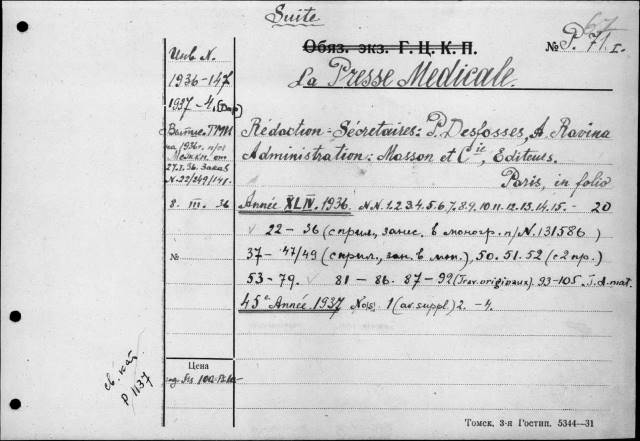 Suite
Обяз. экз. Г.Ц.К.П.
№ P. 71 г.
67
Инв. N.
1936-147
1937-4.
La Presse Medicale.
Rédaction-Sécretaires: P. Desfosses, A. Ravina
Administration: Masson et Cie, Editeurs.
Paris, in folio
на 1936г. п/от
Межкн. от
27.I.36. Заказ
N.22/249/148.
8. III. 36
Année XLIV. 1936. N.N. 1.2.3.4.5.6.7.8.9.10.11.12.13.14.15. - 20
22-36 (с прил., занес. в моногр. п/N. 131586)
№
37-47/49 (с прил., зан. в мон.), 50.51.52 (с 2 пр.)
53-79. 81-86. 87-92 (Trav. originaux). 93-105. T. d. mat.
45e Année. 1937 No(s) 1 (av. suppl) 2. -4.
Цена
св. кат.
P 1137
Томск, 3-я Гостип. 5344—31